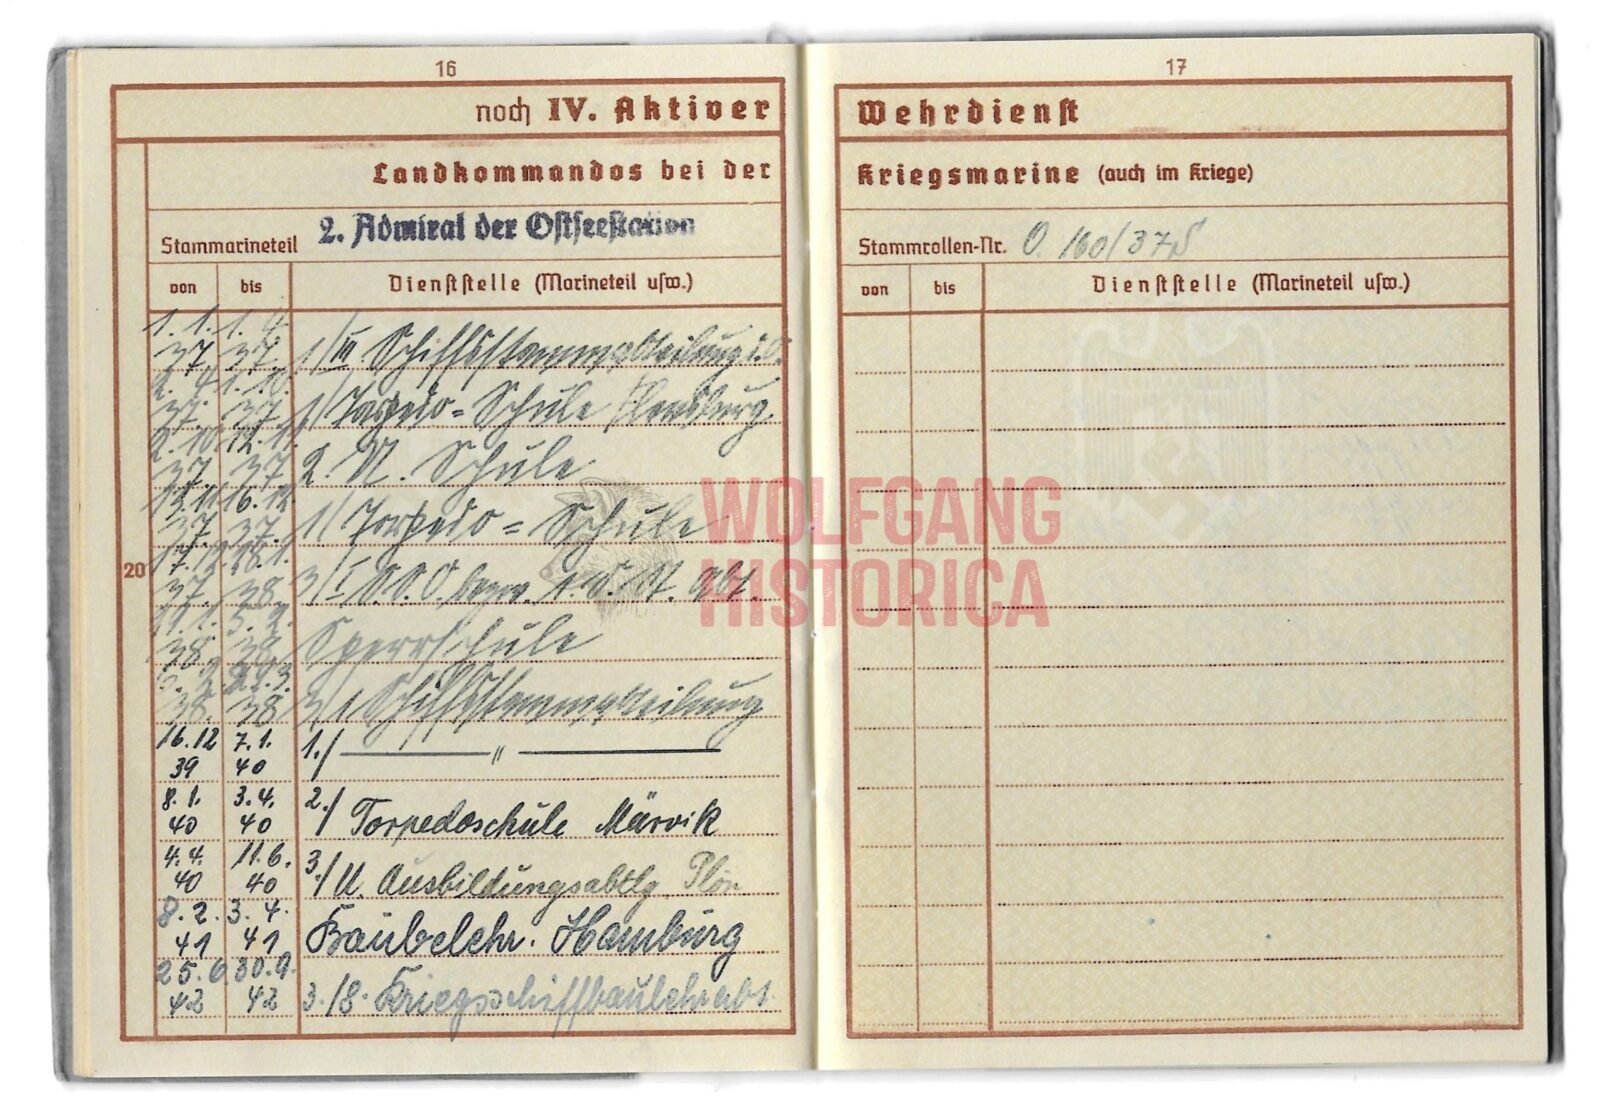 16
noch IV. Aktiver
Landkommandos bei der
Stammarineteil 2. Admiral der Ostseestation
von bis Dienststelle (Marineteil usw.)
1. 1. 37 1. 4. 37. 1/III Schiffsstammabteilung d. O.
2. 4. 37. 1. 10. 37 1/ Torpedo=Schule Flensburg.
2. 10. 37 12. 11. 37 2. N. Schule
13. 11. 37. 16. 12. 37. 1/ Torpedo=Schule
20
17. 12. 37. 18. 1. 38 3/I S.S.O. bezw. Abt.
38. 3. 2. 38 Sperrschule
38. 38 3/1 Schiffsstammabteilung
16.12 39 7.1. 40 1./ — " —
8. 1. 40 3. 4. 40 2./ Torpedoschule Mürwik
4. 4. 40 11. 6. 40 3./ U. Ausbildungsabtlg Plön
8. 2. 41 3. 4. 41 Baubelehr. Hamburg
25. 6. 42 30. 9. 42 3./8. Kriegsschiffbaulehrabt.
17
Wehrdienst
Kriegsmarine (auch im Kriege)
Stammrollen-Nr. O. 160/37 S
von bis Dienststelle (Marineteil usw.)
WOLFGANG
HISTORICA